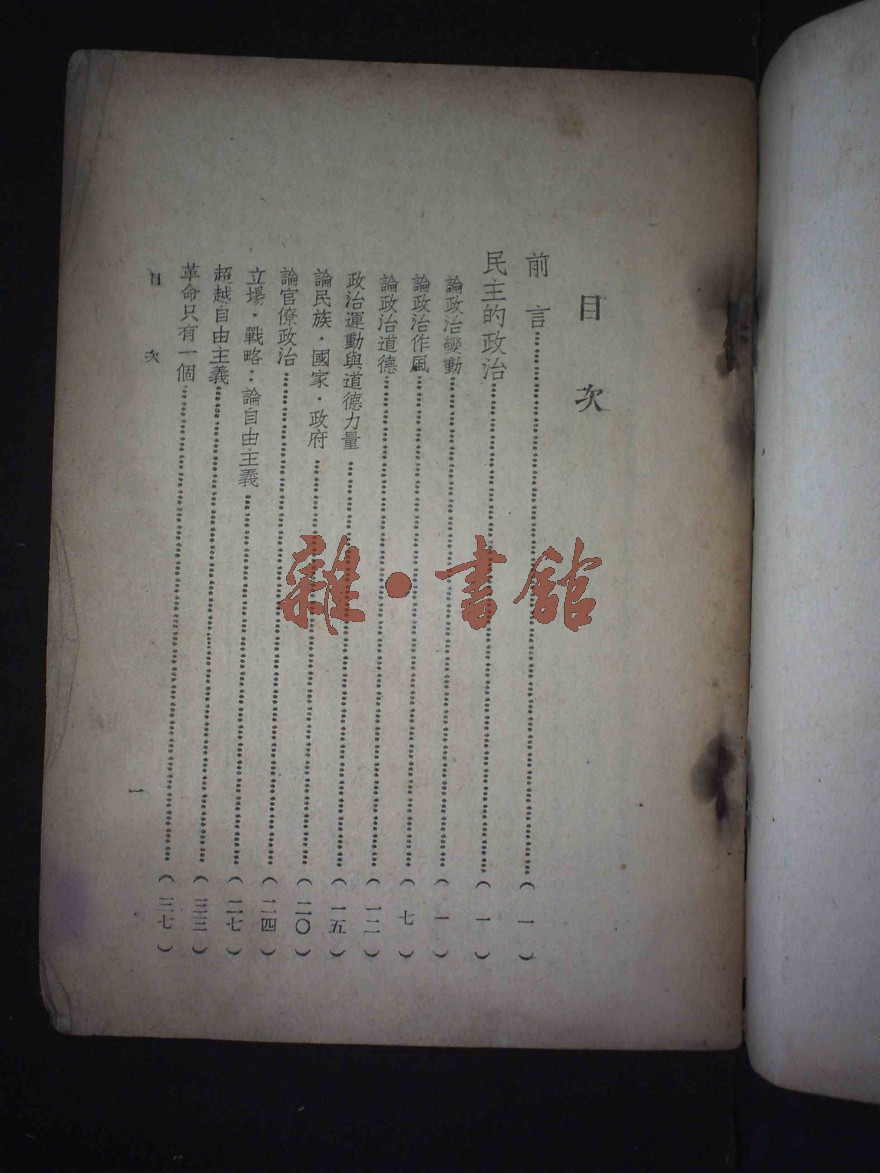 目次
前言……(一)
民主的政治……(一)
論政治變動……(一)
論政治作風……(七)
論政治道德……(一二)
政治運動與道德力量……(一五)
論民族·國家·政府……(二〇)
論官僚政治……(二四)
立場·戰略:論自由主義……(二七)
超越自由主義……(三三)
革命只有一個……(三七)
目次
一
雜·書館